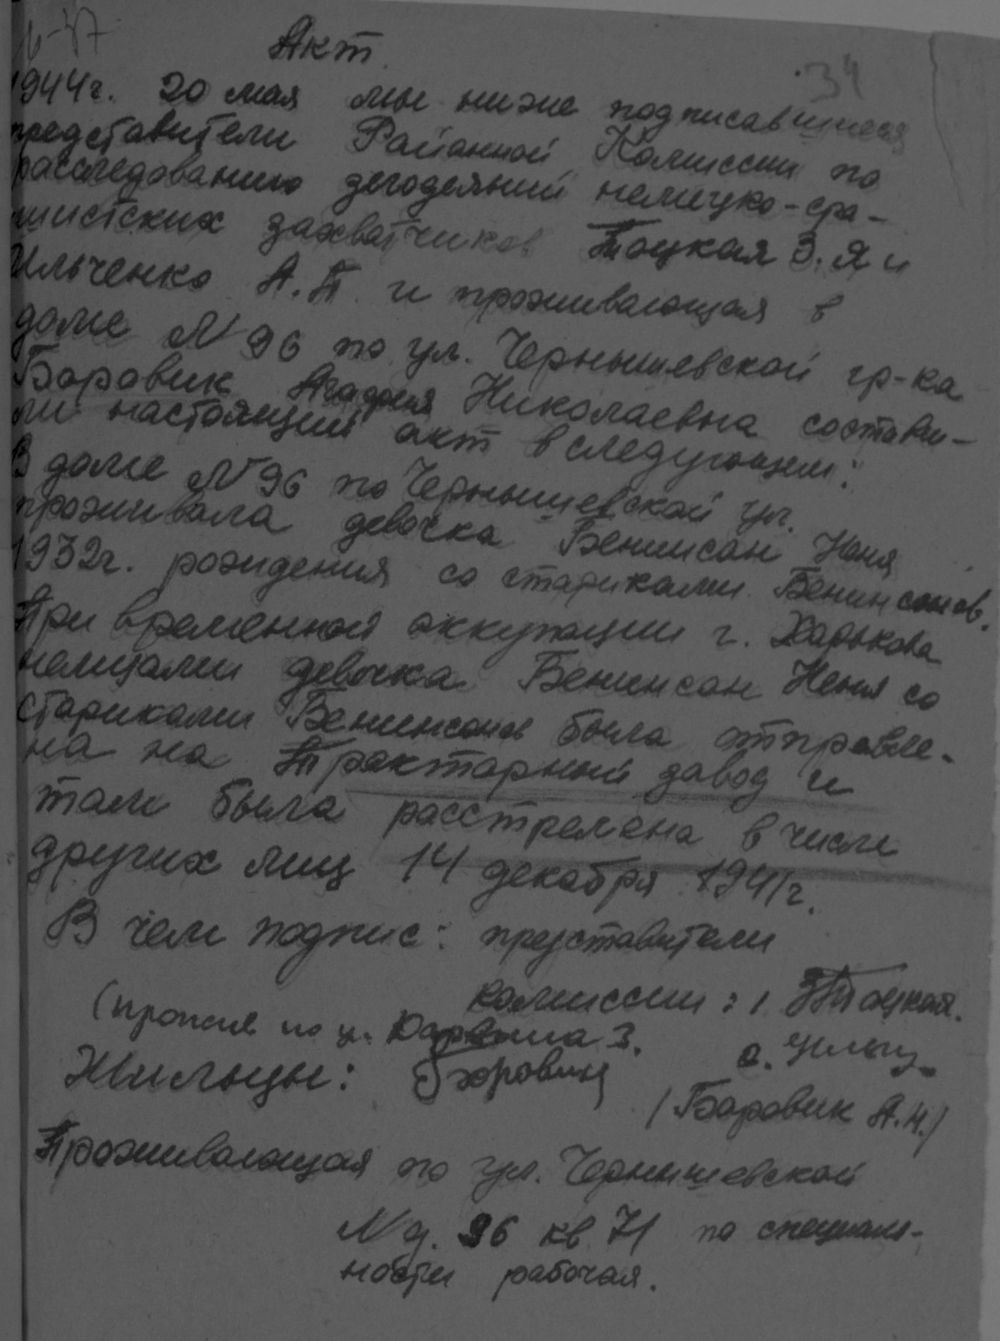 Акт
34
1944г. 20 мая мы ниже подписавшиеся
представители Районной Комиссии по
расследованию злодеяний немецко-фа-
шистских захватчиков Тоцкая З.Я и
Ильченко А.П. и проживающая в
доме №96 по ул. Чернышевской гр-ка
Боровик Агафия Николаевна состави-
ли настоящий акт в следующем:
В доме №96 по Чернышевской ул.
проживала девочка Бенинсон Неня
1932г. рождения со стариками Бенинсонов.
При временной оккупации г. Харькова
немцами девочка Бенинсон Неня со
стариками Бенинсонов была отправле-
на на Тракторный завод и
там была расстреляна в числе
других лиц 14 декабря 1941г.
В чем подпис: представители
комиссии: 1 Тоцкая.
(прожив по у. 3.
Жильцы: Боровик
/Боровик А.Н./
Проживающая по ул. Чернышевской
№ д. 96 кв 71 по специаль-
ности рабочая.